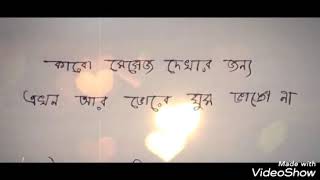 কারো মেসেজ দেখার জন্য
এখন আর ভোরে ঘুম ভাঙ্গে না
Made with
VideoShow